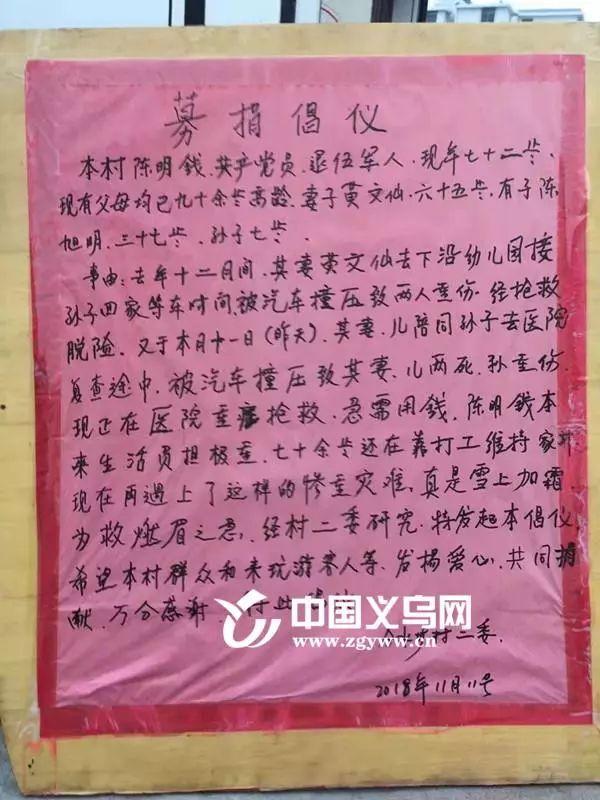 募捐倡仪
本村陈明钱、共产党员、退伍军人、现年七十二岁、
现有父母均已九十余岁高龄、妻子黄文仙、六十五岁、有子陈
旭明、三十七岁、孙子七岁、
事由:去年十二月间、其妻黄文仙去下沿幼儿园接
孙子回家等车时间、被汽车撞压致两人重伤、经抢救
脱险、又于本月十一日(昨天)、其妻、儿陪同孙子去医院
复查途中、被汽车撞压致其妻、儿两死、孙重伤、
现正在医院重症抢救、急需用钱、陈明钱本
来生活负担极重、七十余岁还在靠打工维持家
现在再遇上了这样的惨重灾难、真是雪上加霜、
为救燃眉之急、经村二委研究、特发起本倡仪
希望本村群众和来玩游客人等、发扬爱心、共同捐
献、万分感谢、特此
村二委、
2018年11月11号
中国义乌网
www.zgyww.cn